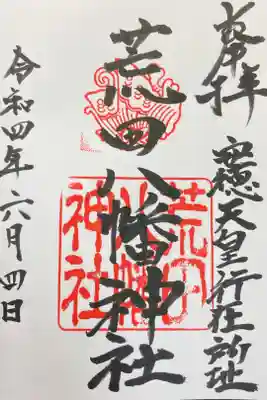 奉拝
安徳天皇行在所址
荒田八幡神社
荒田八幡神社
令和四年六月四日